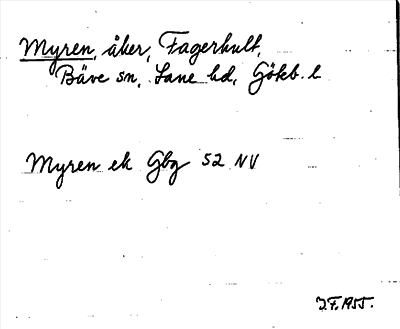 Myren, åker, Fagerhult,
Bäve sn, Lane hd, Götb. l
Myren ek Gbg 52 NV
J.F. 1955.